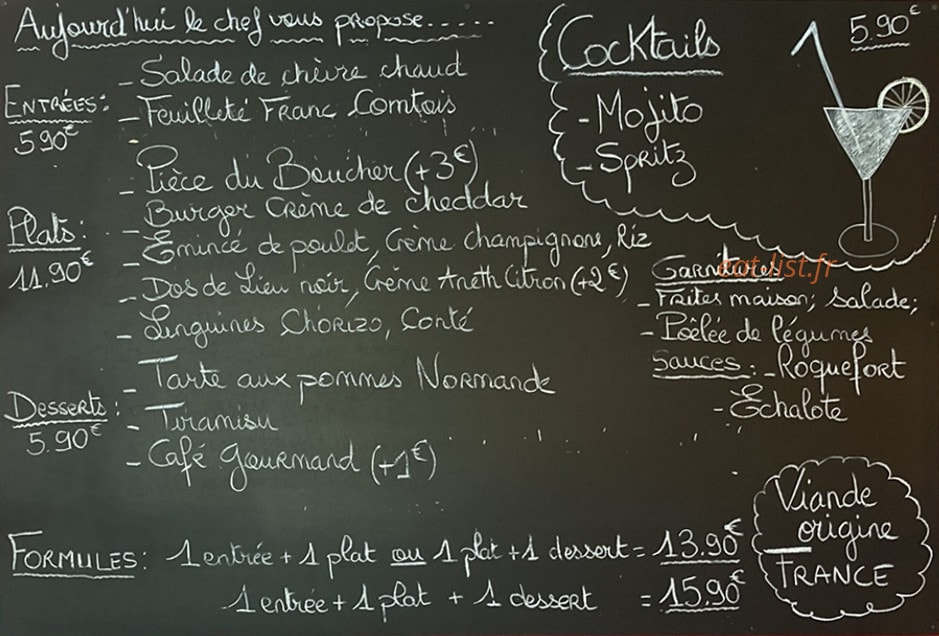 Aujourd'hui le chef vous propose......
ENTRÉES:
5.90€
- Salade de chèvre chaud
- Feuilleté Franc Comtois
Plats:
11.90€
- Pièce du Boucher (+3€)
- Burger Crème de cheddar
- Emincé de poulet, Crème champignons, Riz
- Dos de Lieu noir, Crème Aneth Citron (+2€)
- Linguines CHORIZO, Conté
Desserts:
5.90€
- Tarte aux pommes Normande
- Tiramisu
- Café Gourmand (+1€)
Cocktails
5.90€
- Mojito
- Spritz
Garnitures
eat-list.fr
- Frites maison; salade;
- Poêlée de légumes
Sauces: - Roquefort
- Echalote
FORMULES: 1 entrée + 1 plat ou 1 plat + 1 dessert = 13.90€
1 entrée + 1 plat + 1 dessert = 15.90€
Viande
origine
FRANCE